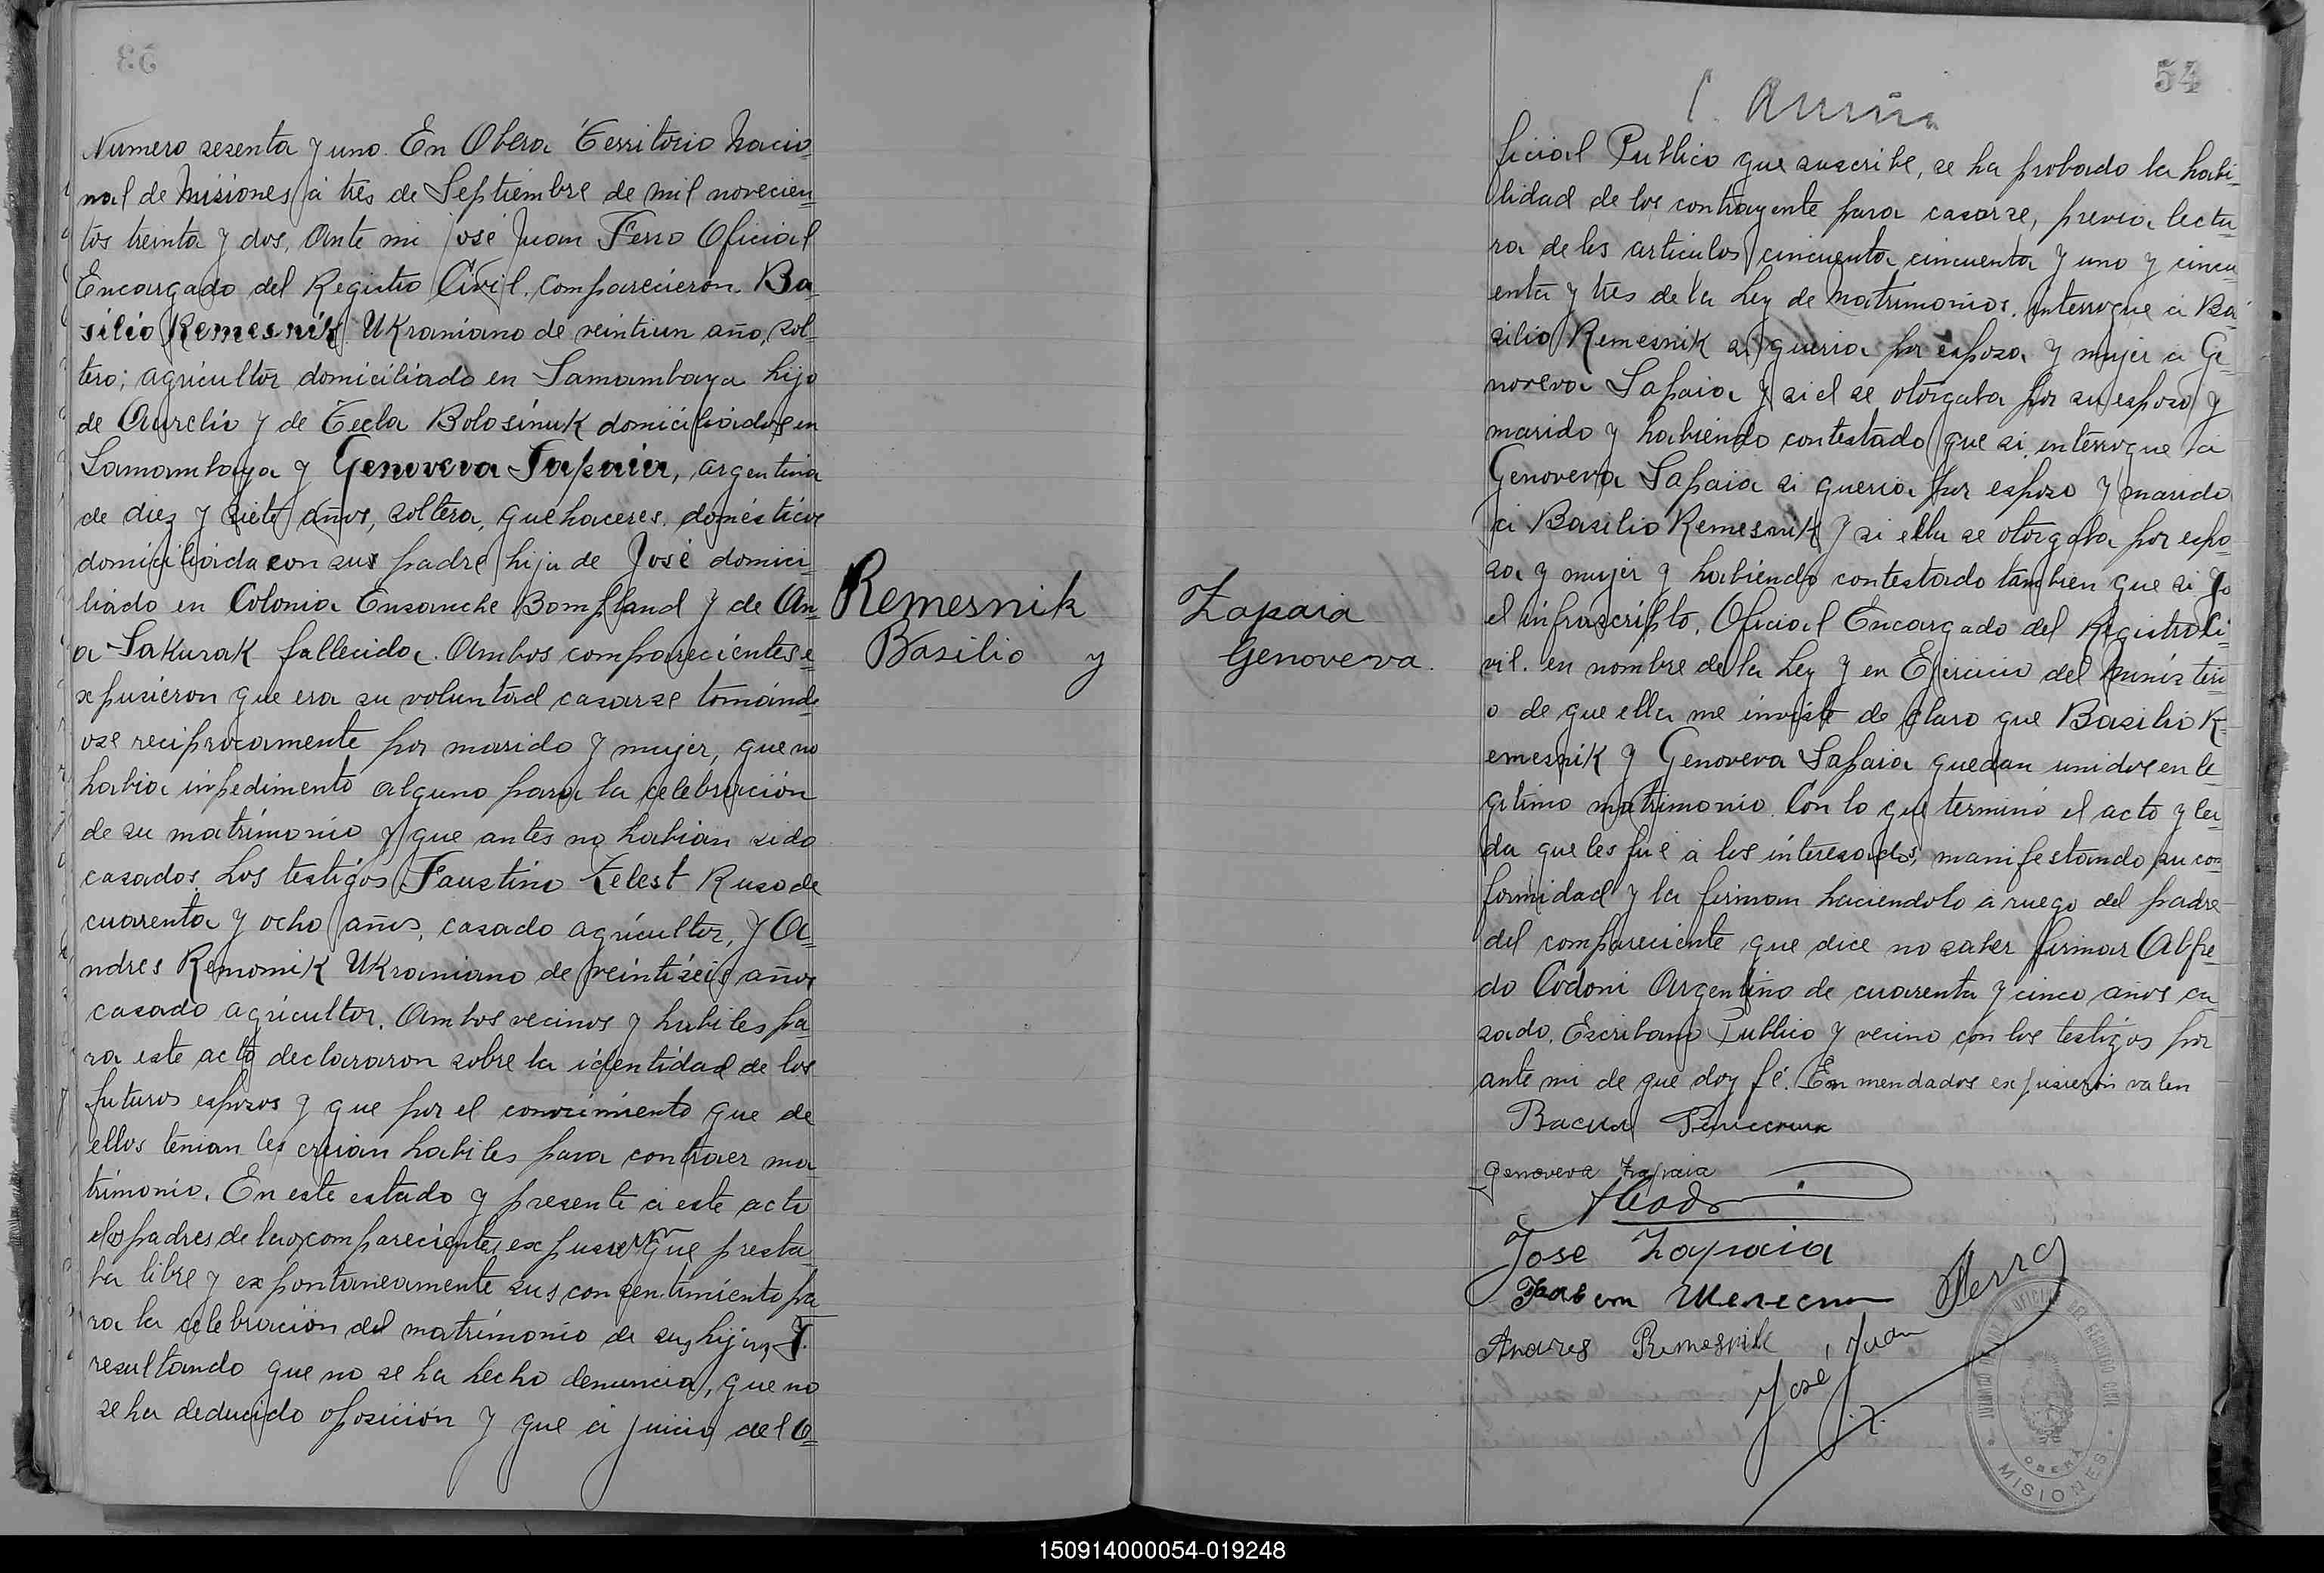 Numero sesenta y uno. En Obera Territorio Nacio-
nal de Misiones a tres de Septiembre de mil novecien=
tos treinta y dos, Ante mi José Juan Ferro Oficial
Encargado del Registro Civil. comparecieron Ba-
silio Remesnik Ukraniano de veintiun año, sol-
tero; agricultor domiciliado en Samambaya hijo
de Aurelio y de Tecla Bolosinuk domiciliados en
Samambaya y Genoveva Sapaia, argentina
de diez y siete años, soltera, quehaceres domésticos
domiciliada con sus padre hija de José domici-
liado en Colonia Ensanche Bompland y de An-
a Sakurak fallecida. Ambos comparecientes e-
xpusieron que era su voluntad casarse tománd-
ose reciprocamente por marido y mujer, que no
habia inpedimento alguno para la celebración
de su matrimonio y que antes no habian sido
casados. Los testigos Faustino Zelest Ruso de
cuarenta y ocho años, casado agricultor, y A-
ndres Remomik Ukraniano de veintiseis años
casado agricultor. Ambos vecinos y habiles pa-
ra este acto declararon sobre la identidad de los
futuros esposos y que por el conocimiento que de
ellos tenian les creian habiles para contraer ma-
trimonio. En este estado y presente a este acto
los padres de los comparecientes expusieron que presta-
ba libre y expontaneamente sus consentimiento pa-
ra la celebración del matrimonio de sus hijos, Y.
resultando que no se ha hecho denuncia, que no
se ha deducido oposición y que a juicio del O=
Remesnik
Basilio y
Zapaia
Genoveva.
54
ficial Publico que suscribe, se ha probado la habi-
lidad de los contrayente para casarse, previa lectu-
ra de los articulos cincuenta cincuenta y uno y cincu
enta y tres de la Ley de Matrimonios, interrogue a Ba-
silio Remesnik si queria por esposa y mujer a Ge-
noveva Sapaia y si el se otorgaba por su esposo y
marido y habiendo contestado que si, interrogue a
Genoveva Sapaia si queria por esposo y marido
a Basilio Remesnik y si ella se otorgaba por espo-
sa y mujer y habiendo contestado tambien que si Yo
el infrascripto, Oficial Encargado del Registro Ci-
vil. en nombre de la Ley y en Ejercicio del Ministeri-
o de que ella me inviste de claro que Basilio R-
emesnik y Genoveva Sapaia quedan unidos en le
gitimo matrimonio. Con lo que terminó el acto y lei-
da que les fué a los interesados, manifestando su con-
formidad y la firman haciendolo a ruego del padre
del compareciente que dice no saber firmar Alfre-
do Codoni Argentino de cuarenta y cinco años ca
sado, Escribano Publico y vecino con los testigos por
ante mi de que doy fé. Enmendados expusieron valen
Genoveva Zapaia
Jose Zapaia
Andres Remesnik
José Juan Ferro
OFICINA DEL REGISTRO CIVIL
OBERA
MISIONES
150914000054-019248